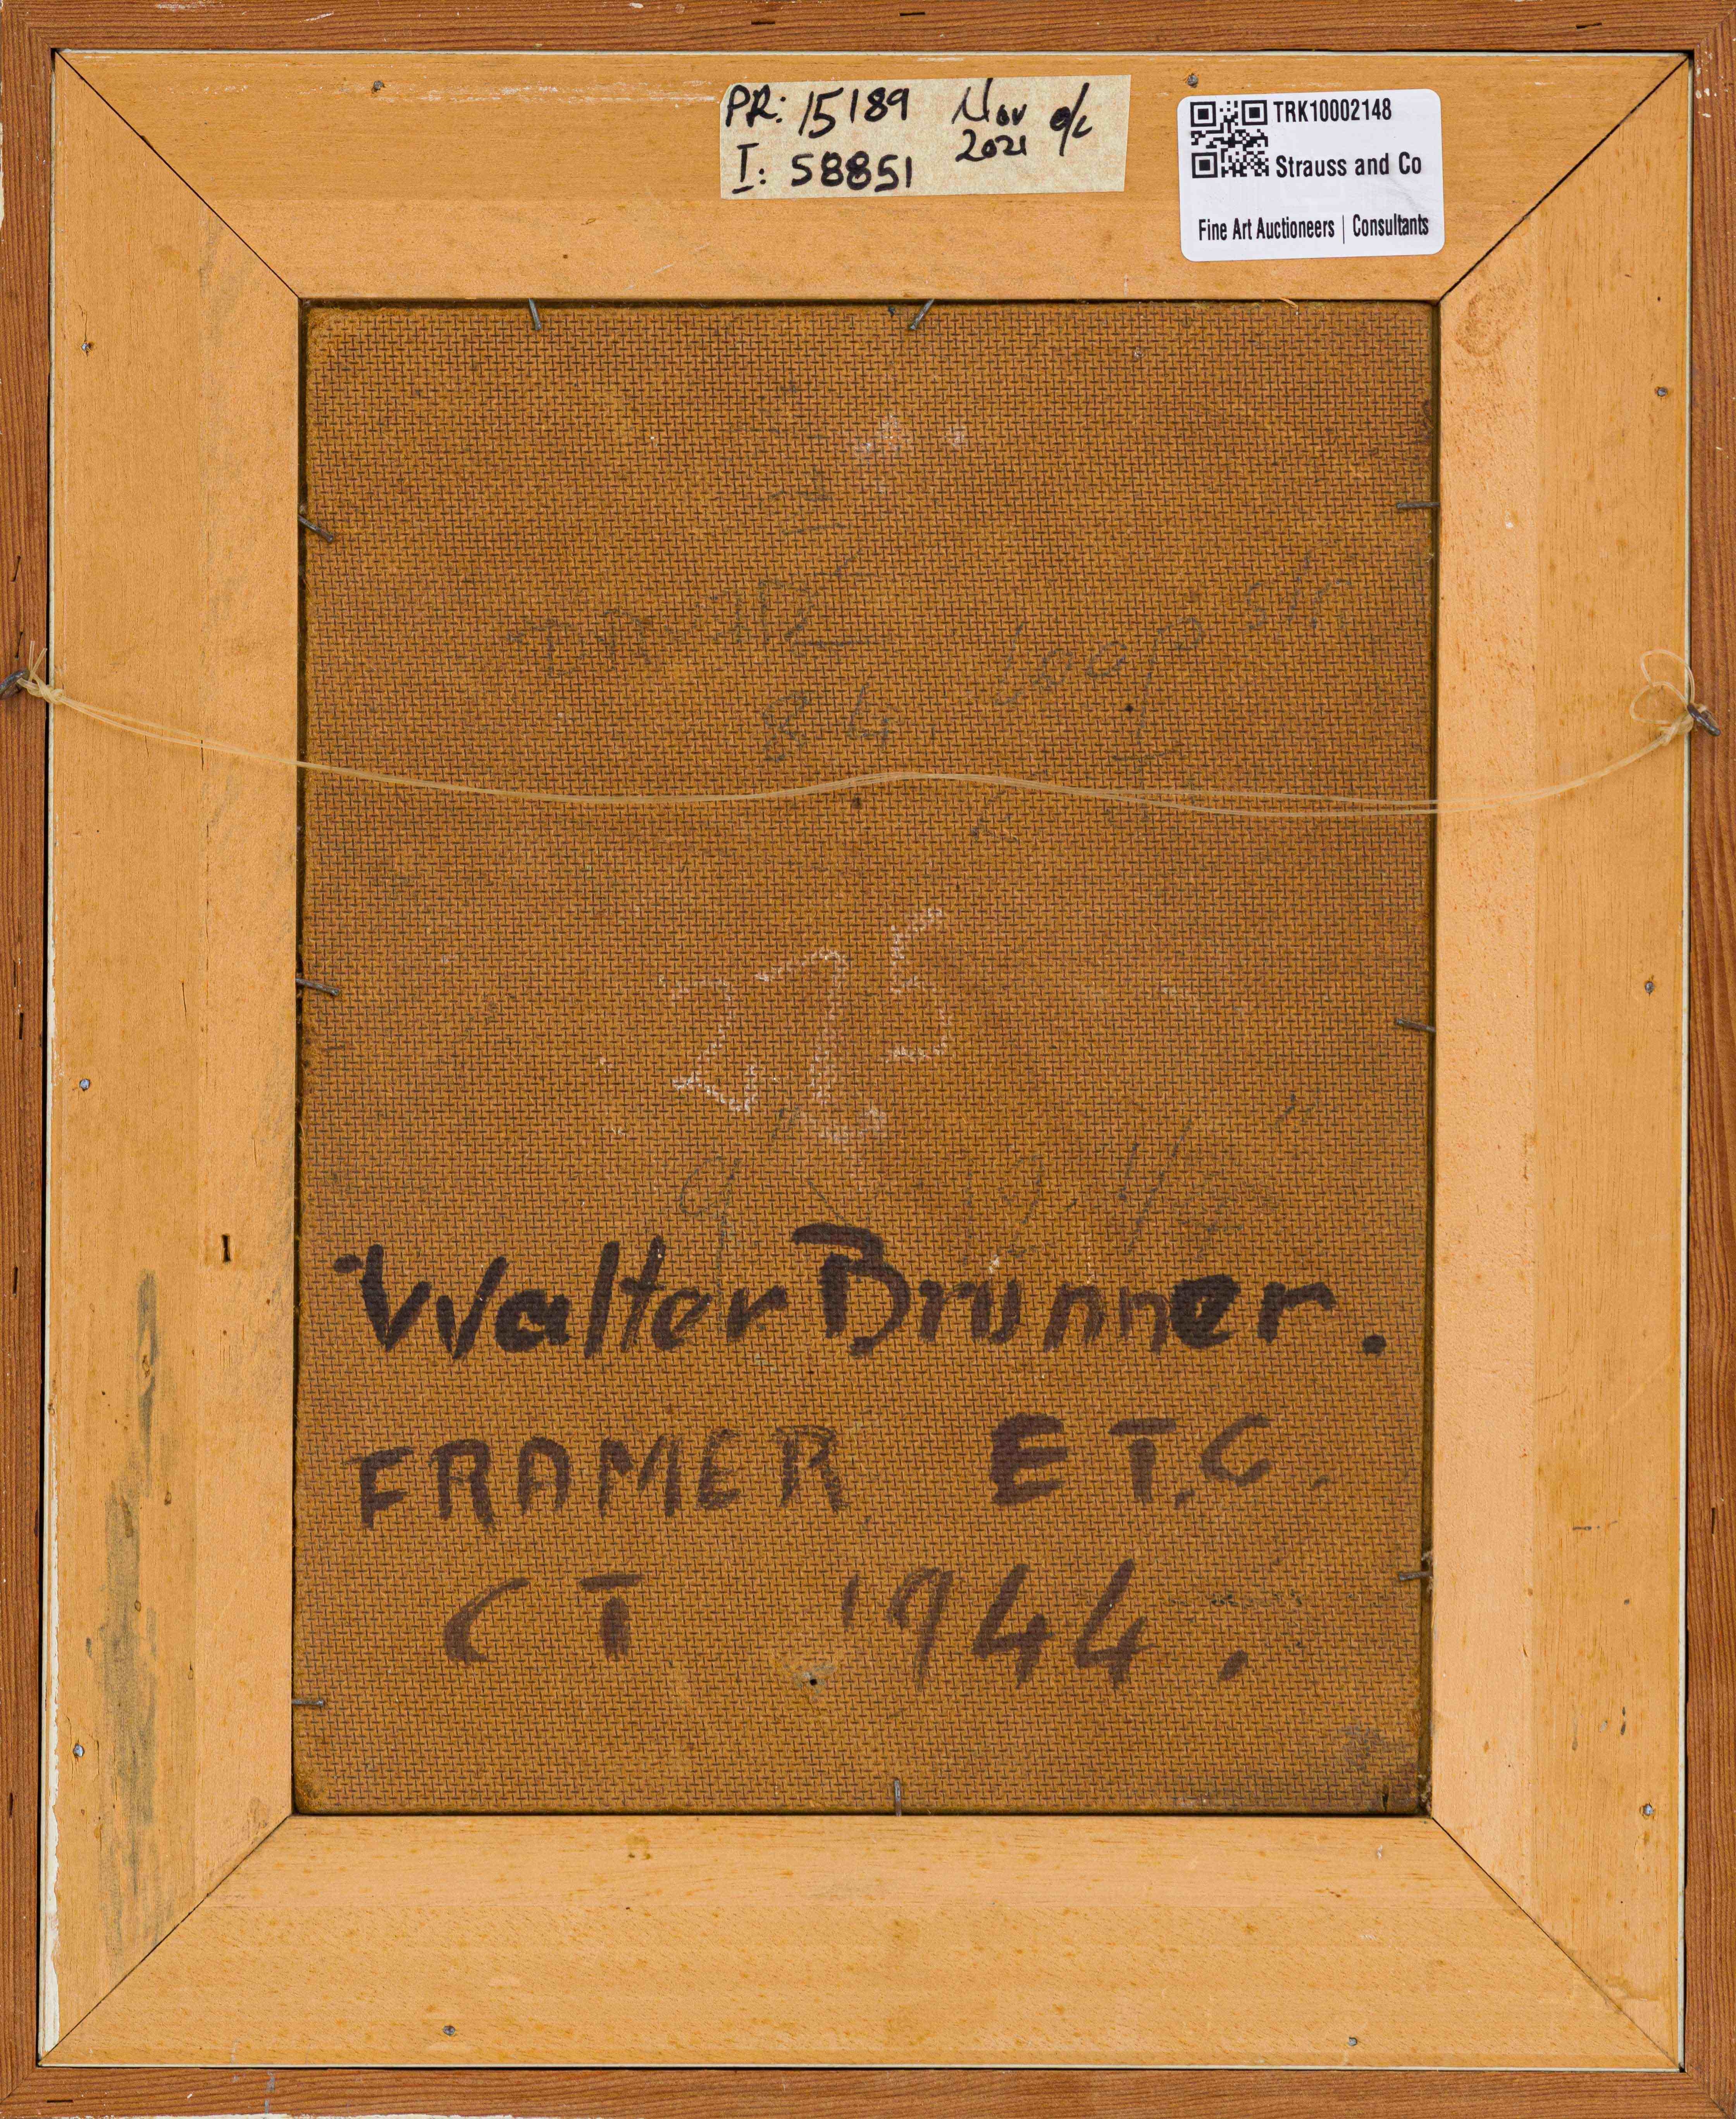 PR: 15189 Nov 2021 o/c
I: 58851
TRK10002148
Strauss and Co
Fine Art Auctioneers | Consultants
84 Loop
275
Walter Brunner.
FRAMER E T.C.
CT 1944.